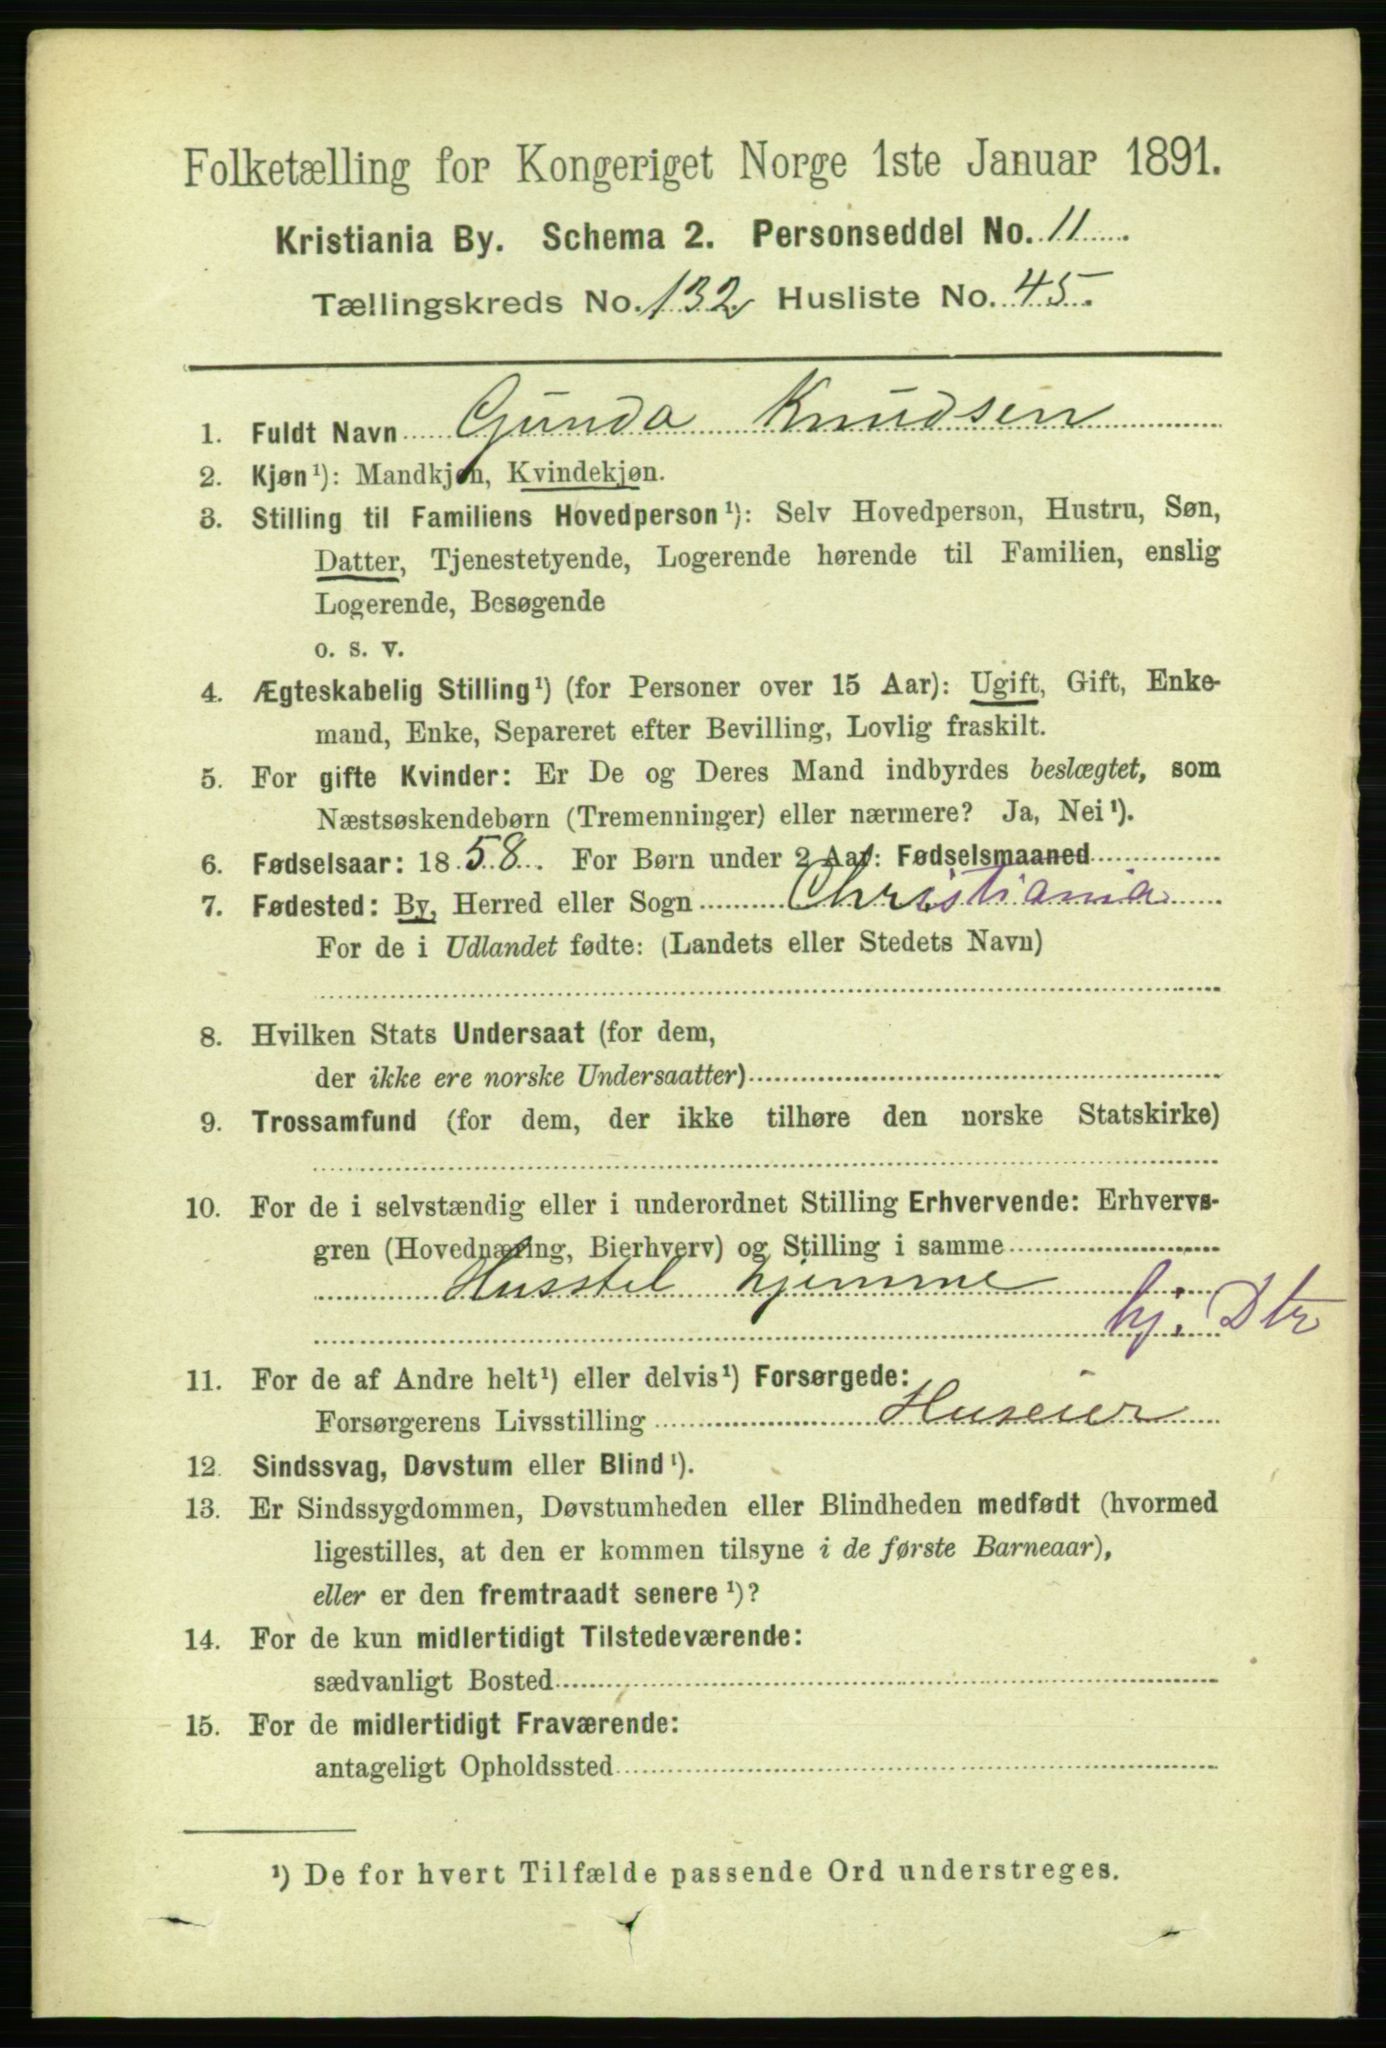 Folketælling for Kongeriget Norge 1ste Januar 1891.
Kristiania By. Schema 2. Personseddel No. 11
Tællingskreds No. 132 Husliste No. 45.
1. Fuldt Navn Gunda Knudsen
2. Kjøn¹): Mandkjøn, Kvindekjøn.
3. Stilling til Familiens Hovedperson¹): Selv Hovedperson, Hustru, Søn,
Datter, Tjenestetyende, Logerende hørende til Familien, enslig
Logerende, Besøgende
o. s. v.
4. Ægteskabelig Stilling¹) (for Personer over 15 Aar): Ugift, Gift, Enke-
mand, Enke, Separeret efter Bevilling, Lovlig fraskilt.
5. For gifte Kvinder: Er De og Deres Mand indbyrdes beslægtet, som
Næstsøskendebørn (Tremenninger) eller nærmere? Ja, Nei¹).
6. Fødselsaar: 1858. For Børn under 2 Aar: Fødselsmaaned
7. Fødested: By, Herred eller Sogn Christiania
For de i Udlandet fødte: (Landets eller Stedets Navn)
8. Hvilken Stats Undersaat (for dem,
der ikke ere norske Undersaatter)
9. Trossamfund (for dem, der ikke tilhøre den norske Statskirke)
10. For de i selvstændig eller i underordnet Stilling Erhvervende: Erhvervs-
gren (Hovednæring, Bierhverv) og Stilling i samme
Husstel hjemme
hj. Dtr
11. For de af Andre helt¹) eller delvis¹) Forsørgede:
Forsørgerens Livsstilling Huseier
12. Sindssvag, Døvstum eller Blind¹).
13. Er Sindssygdommen, Døvstumheden eller Blindheden medfødt (hvormed
ligestilles, at den er kommen tilsyne i de første Barneaar),
eller er den fremtraadt senere¹)?
14. For de kun midlertidigt Tilstedeværende:
sædvanligt Bosted
15. For de midlertidigt Fraværende:
antageligt Opholdssted
¹) De for hvert Tilfælde passende Ord understreges.